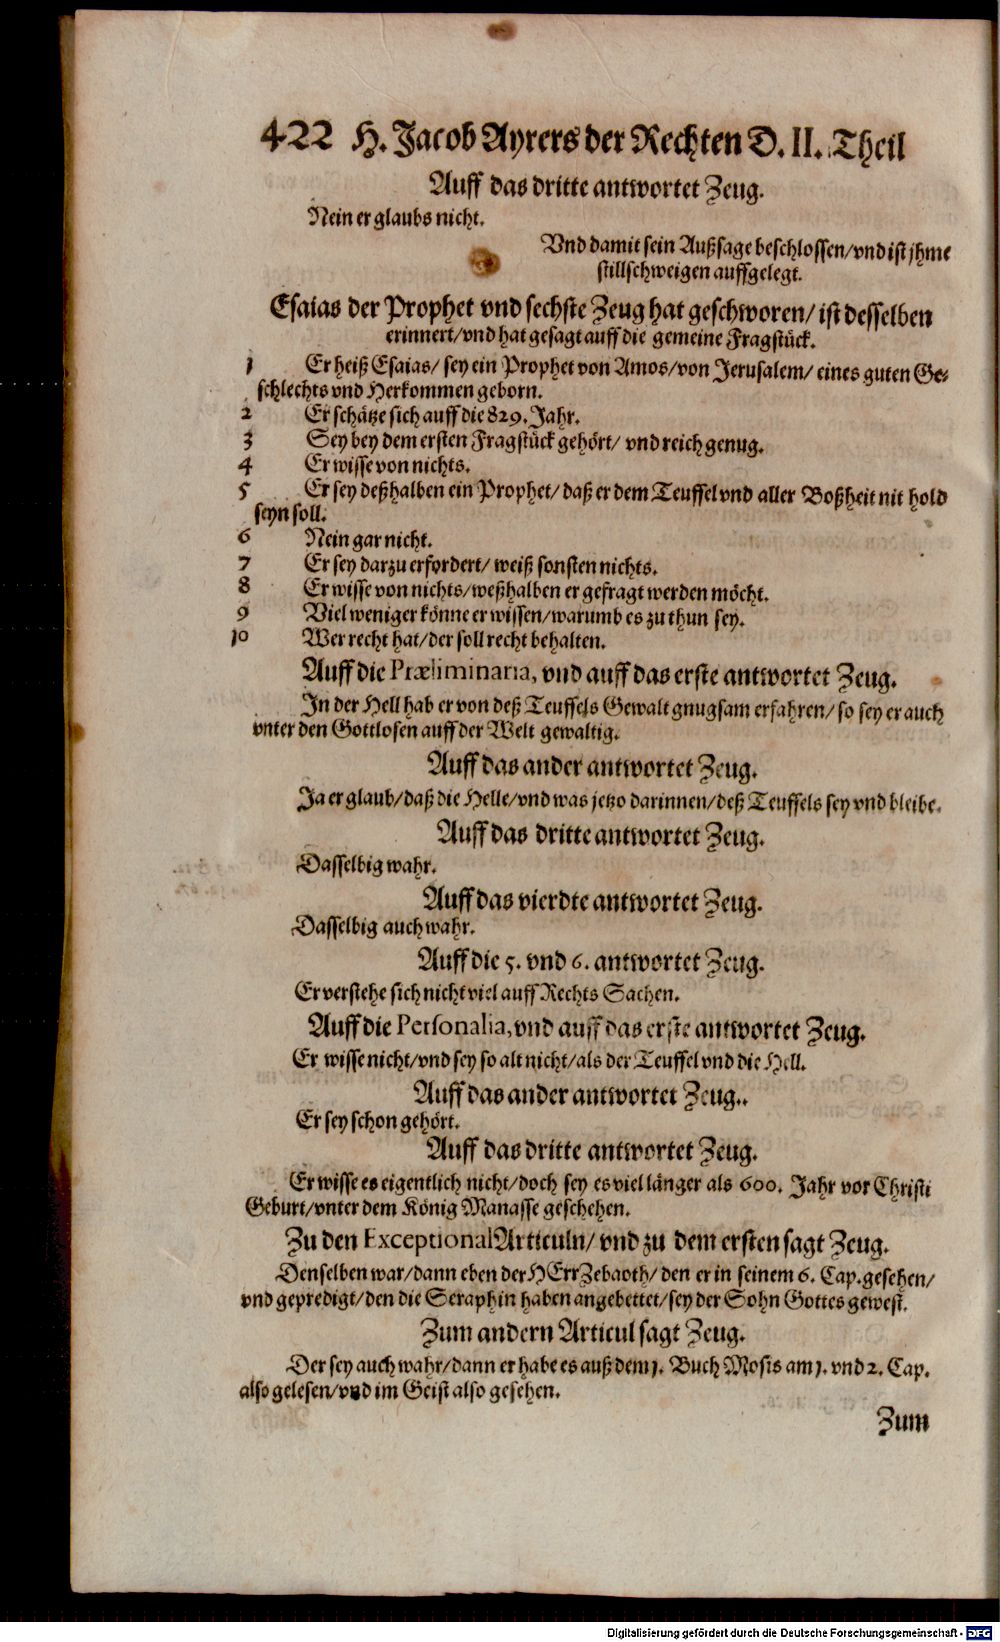 422 H. Jacob Ayrers der Rechten D. II. Theil
Auff das dritte antwortet Zeug.
Nein er glaubs nicht.
Vnd damit sein Außsage beschlossen/vnd ist jhme
stillschweigen auffgelegt.
Esaias der Prophet vnd sechste Zeug hat geschworen/ ist desselben
erinnert/vnd hat gesagt auff die gemeine Fragstück.
1 Er heiß Esaias/ sey ein Prophet von Amos/von Jerusalem/ eines guten Ge-
schlechts vnd Herkommen geborn.
2 Er schätze sich auff die 829. Jahr.
3 Sey bey dem ersten Fragstück gehört/ vnd reich genug.
4 Er wisse von nichts.
5 Er sey deßhalben ein Prophet/ daß er dem Teuffel vnd aller Boßheit nit hold
seyn soll.
6 Nein gar nicht.
7 Er sey darzu erfordert/ weiß sonsten nichts.
8 Er wisse von nichts/weßhalben er gefragt werden möcht.
9 Viel weniger könne er wissen/warumb es zu thun sey.
10 Wer recht hat/der soll recht behalten.
Auff die Præliminaria, vnd auff das erste antwortet Zeug.
In der Hell hab er von deß Teuffels Gewalt gnugsam erfahren/ so sey er auch
vnter den Gottlosen auff der Welt gewaltig.
Auff das ander antwortet Zeug.
Ja er glaub/daß die Helle/vnd was jetzo darinnen/deß Teuffels sey vnd bleibe.
Auff das dritte antwortet Zeug.
Dasselbig wahr.
Auff das vierdte antwortet Zeug.
Dasselbig auch wahr.
Auff die 5. vnd 6. antwortet Zeug.
Er verstehe sich nicht viel auff Rechts Sachen.
Auff die Personalia, vnd auff das erste antwortet Zeug.
Er wisse nicht/vnd sey so alt nicht/als der Teuffel vnd die Hell.
Auff das ander antwortet Zeug..
Er sey schon gehört.
Auff das dritte antwortet Zeug.
Er wisse es eigentlich nicht/doch sey es viel länger als 600. Jahr vor Christi
Geburt/vnter dem König Manasse geschehen.
Zu den Exceptional Articuln/ vnd zu dem ersten sagt Zeug.
Denselben war/dann eben der HErr Zebaoth/ den er in seinem 6. Cap. gesehen/
vnd gepredigt/den die Seraphin haben angebettet/sey der Sohn Gottes gewest.
Zum andern Articul sagt Zeug.
Der sey auch wahr/dann er habe es auß dem 1. Buch Mosis am 1. vnd 2. Cap.
also gelesen/vnd im Geist also gesehen.
Zum
Digitalisierung gefördert durch die Deutsche Forschungsgemeinschaft - DFG